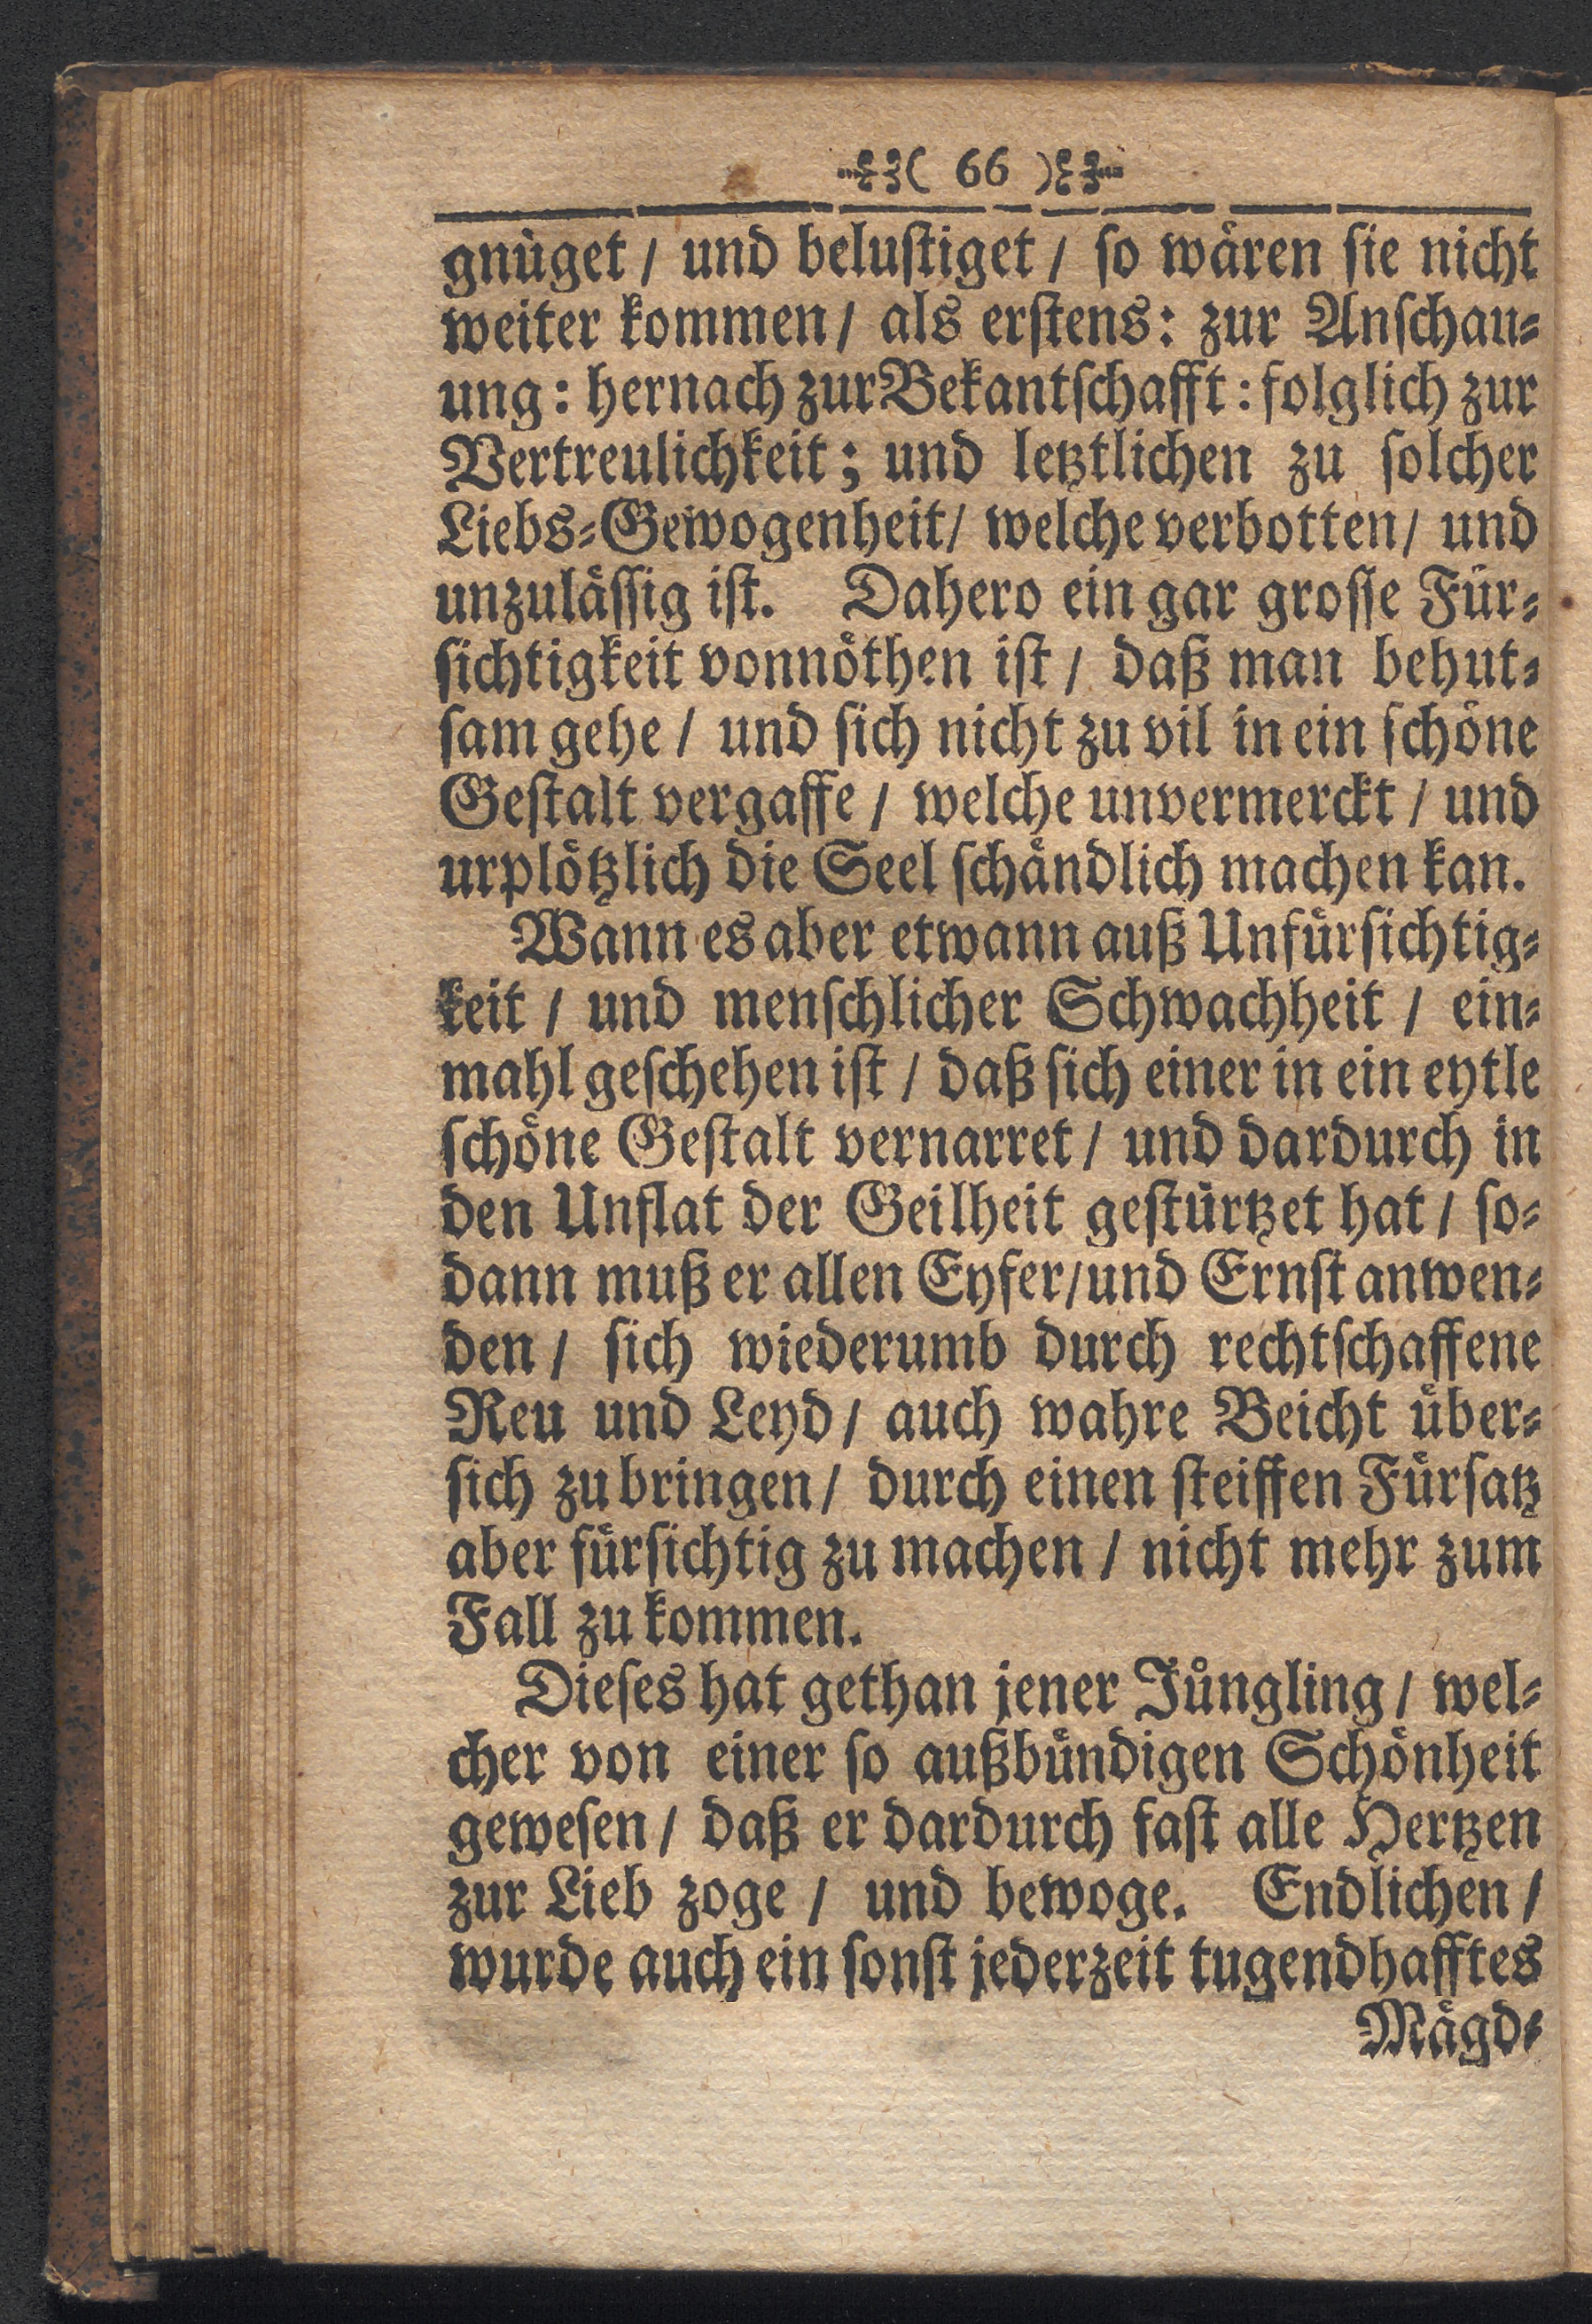 ( 66 )
gnuͤget / und beluſtiget / ſo waͤren ſie nicht
weiter kommen / als erſtens: zur Anſchau⸗
ung: hernach zur Bekantſchafft: folglich zur
Vertreulichkeit; und letztlichen zu ſolcher
Liebs⸗Gewogenheit / welche verbotten / und
unzulaͤſſig iſt. Dahero ein gar groſſe Fuͤr⸗
ſichtigkeit vonnoͤthen iſt / daß man behut⸗
ſam gehe / und ſich nicht zu vil in ein ſchoͤne
Geſtalt vergaffe / welche unvermerckt / und
urploͤtzlich die Seel ſchaͤndlich machen kan.
Wann es aber etwann auß Unfuͤrſichtig⸗
keit / und menſchlicher Schwachheit / ein⸗
mahl geſchehen iſt / daß ſich einer in ein eytle
ſchoͤne Geſtalt vernarret / und dardurch in
den Unflat der Geilheit geſtuͤrtzet hat / ſo⸗
dann muß er allen Eyfer / und Ernſt anwen⸗
den / ſich wiederumb durch rechtſchaffene
Reu und Leyd / auch wahre Beicht uͤber⸗
ſich zu bringen / durch einen ſteiffen Fuͤrſatz
aber fuͤrſichtig zu machen / nicht mehr zum
Fall zu kommen.
Dieſes hat gethan jener Juͤngling / wel⸗
cher von einer ſo außbuͤndigen Schoͤnheit
geweſen / daß er dardurch faſt alle Hertzen
zur Lieb zoge / und bewoge. Endlichen /
wurde auch ein ſonſt jederzeit tugendhafftes
Maͤgd⸗